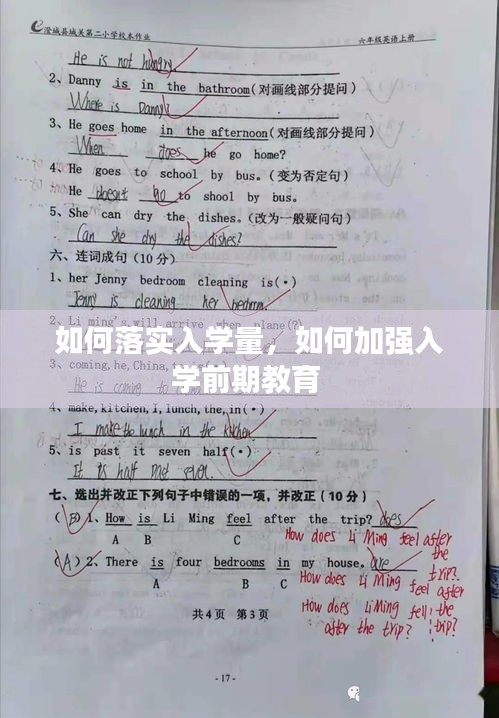 澄城县城关第二小学校本作业 六年级英语上册
He is not hungry.
2、Danny is in the bathroom(对画线部分提问)
Where is Danny?
3、He goes home in the afternoon(对画线部分提问)
When does he go home?
4、He goes to school by bus.(变为否定句)
He doesnt go to shool by bus.
5、She can dry the dishes.(改为一般疑问句)
Can she dry the dishes?
六、连词成句(10分)
1、her Jenny bedroom cleaning is(•)
Jenny is cleaning her bedroom.
2、Li ming's, will, arrive, when, plane(?)
如何落实入学量，如何加强入
学前期教育
3、coming,he,China,
4、make,kitchen,I,lunch,the,in(•)
I make the lunch in the kitchen
5、is past it seven half(•)
It is half past seven.
七、选出并改正下列句子中错误的一项，并改正(10分)
(B)1、How is Li Ming feel after the trip? does
A B C
How does Li Ming feel after the trip?
(A)2、There is four bedrooms in my house. are
A B C
How does Li Ming feel after the trip?
How does Li Ming fell after the trip?
共4页 第3页
-17-